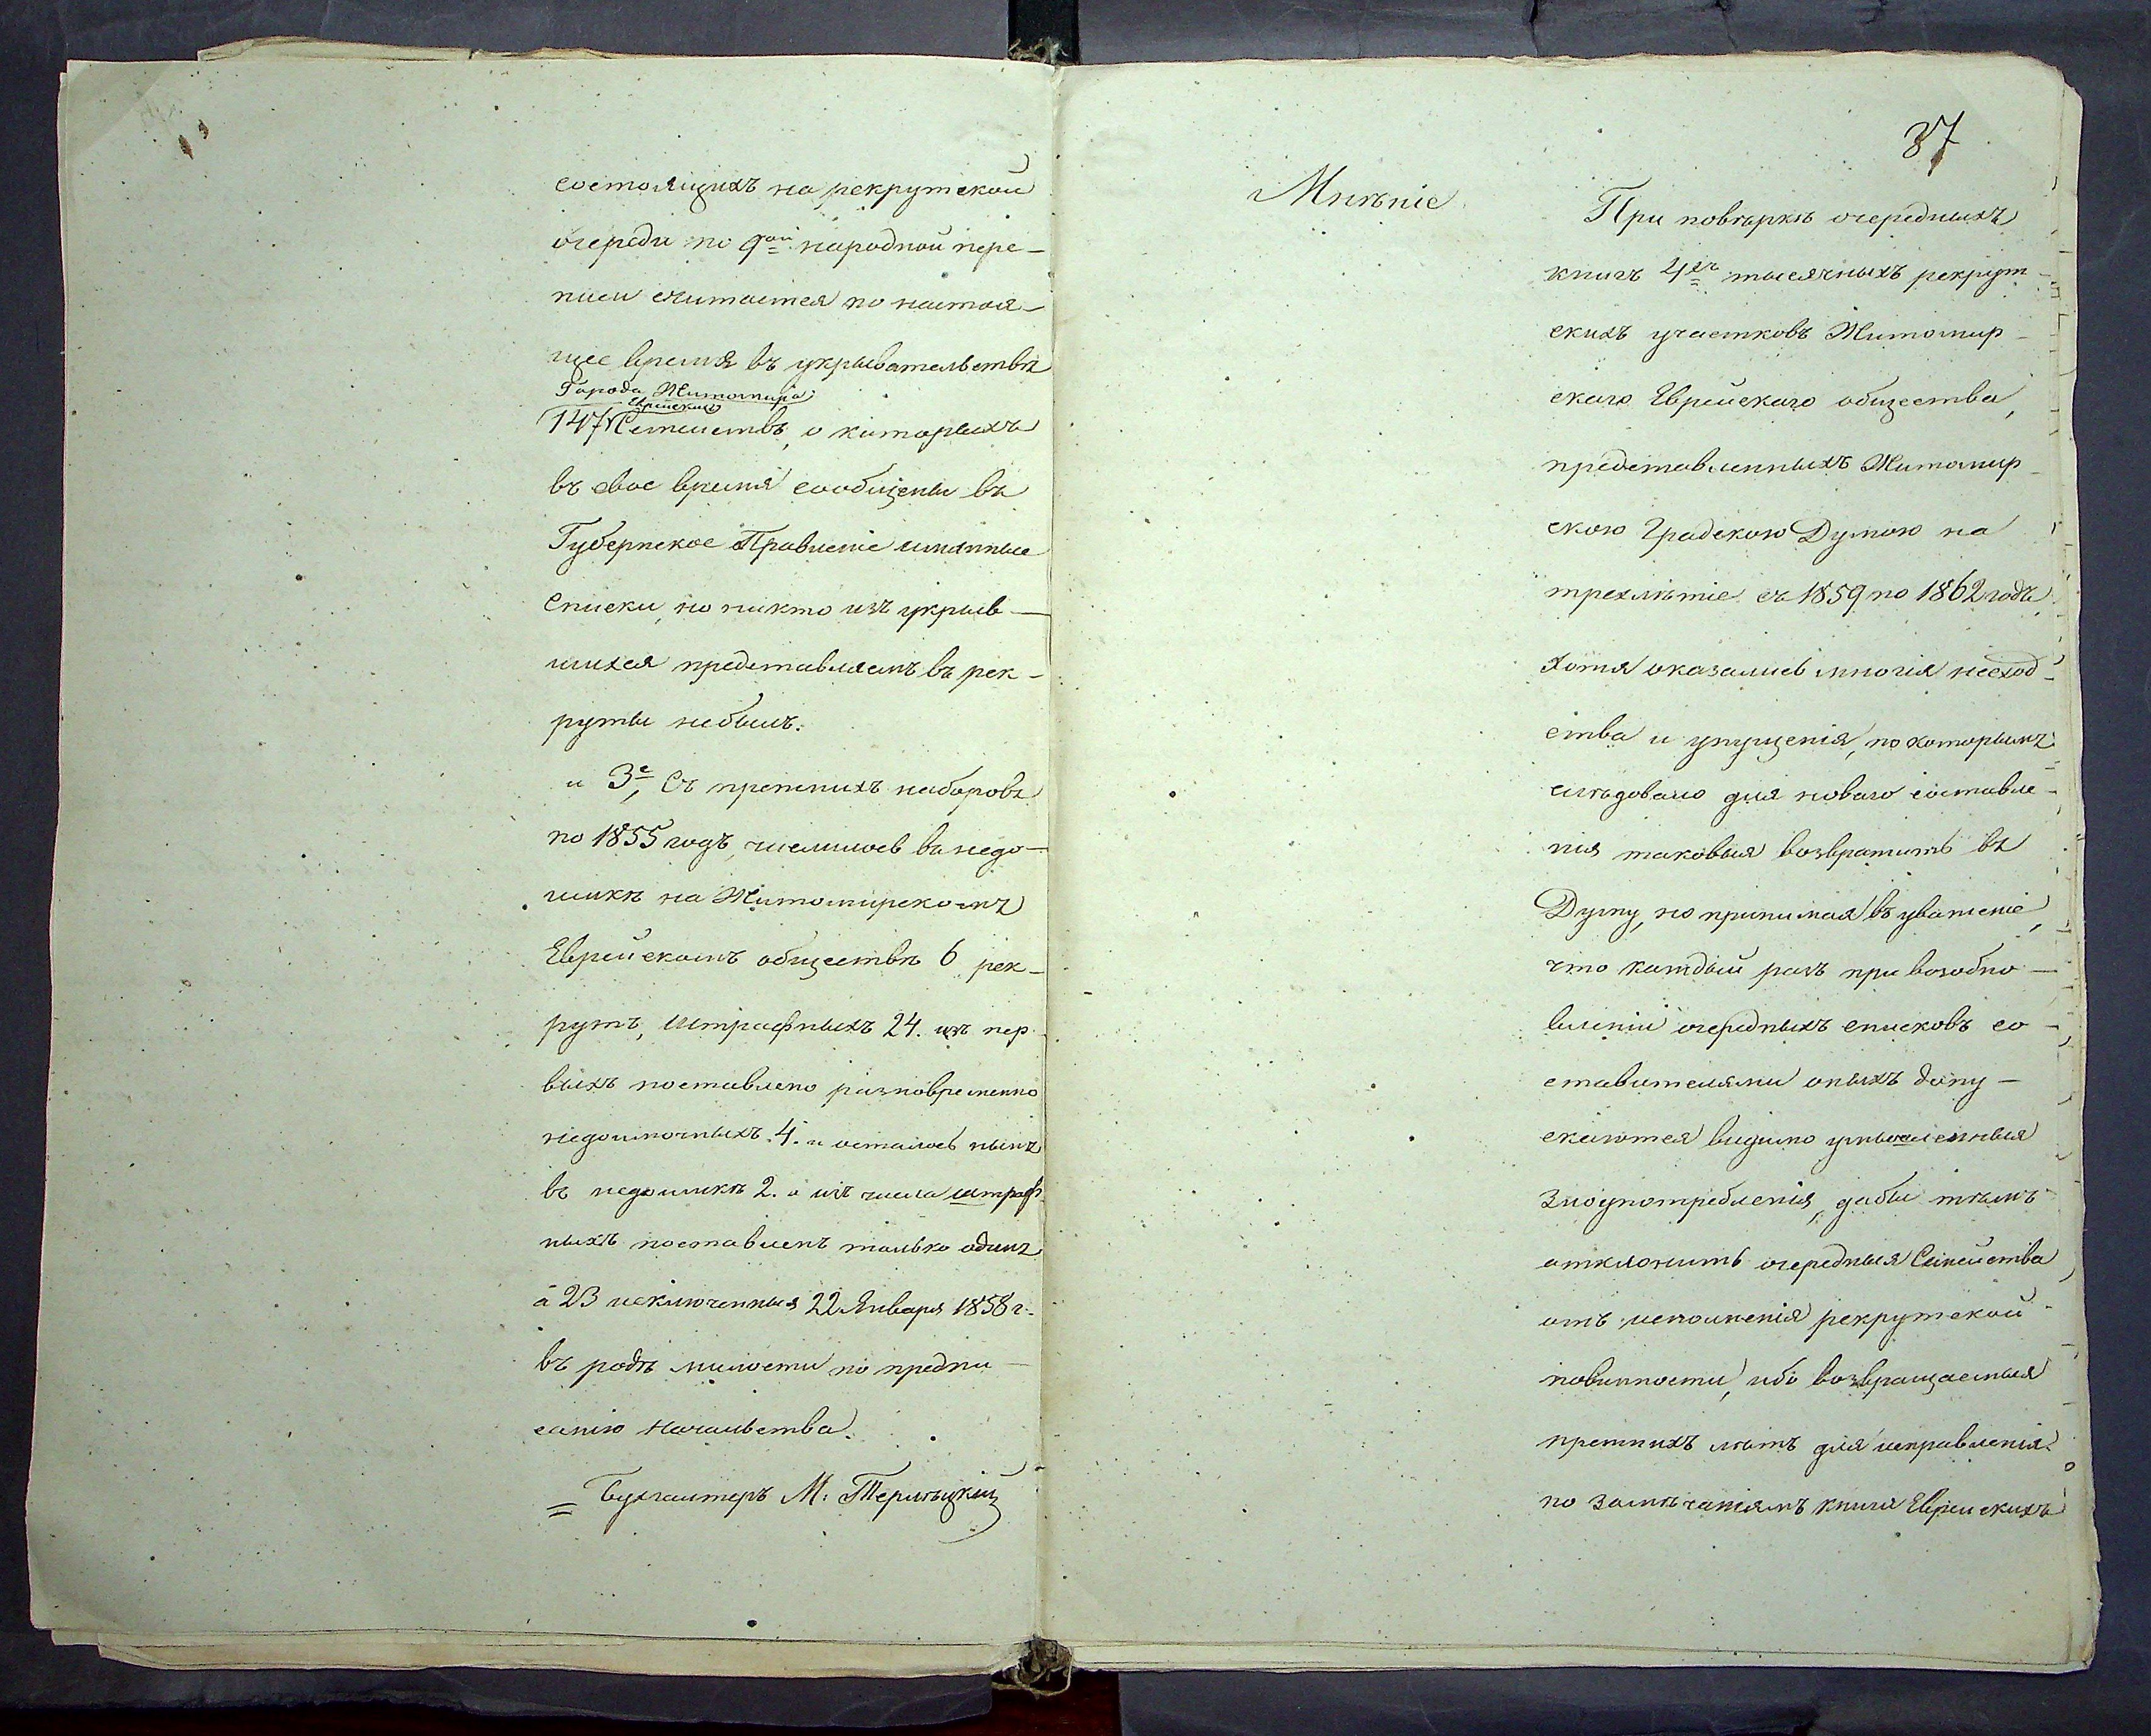 состоящихъ на рекрутской
очереди по 9ой народной пере-
писи считается по настоя-
щее время въ укрывательствѣ
Города Житомира
Еврейскихъ
147 Семействъ, о которыхъ
въ свое время сообщены въ
Губернское Правленіе имянные
списки, но никто изъ укрыв-
шихся представляемъ въ рек-
руты небылъ.
и 3е, Съ прежнихъ наборовъ
по 1855 годъ, числилось въ недо-
имкѣ на Житомирскомъ
Еврейскомъ обществѣ 6 рек-
рутъ, штрафныхъ 24. изъ пер-
выхъ поставлено разновременно
недоимочныхъ 4. и осталось нынѣ
въ недоимкѣ 2. а изъ числа штраф-
ныхъ поставленъ только одинъ
а 23 исключенныя 22 Января 1858 г.
въ родѣ милости по предпи-
санію Начальства.
Бухгалтеръ М. Терлецкій
87
Мнѣніе
При повѣркѣ очередныхъ
книгъ 4хъ тысячныхъ рекрут-
скихъ участковъ Житомир-
скаго Еврейскаго общества,
представленныхъ Житомир-
скою Градскою Думою на
трехлѣтіе съ 1859 по 1862 годъ,
хотя оказались многія несход-
ства и упущенія, по которымъ
слѣдовало для новаго составле-
нія таковыя возвратить въ
Думу, но принимая въ уваженіе,
что каждый разъ при возобно-
вленіи очередныхъ списковъ со-
ставителями оныхъ допу-
скаются видимо умышленныя
злоупотребленія, дабы тѣмъ
отклонить очередныя Семейства
отъ исполненія рекрутской
повинности, ибо возвращаемыя
прежнихъ лѣтъ для исправленія
по замѣчаніямъ книги Еврейскихъ